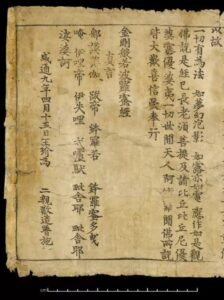 一切有為法 如夢幻泡影 如露亦如電 應作如是觀
佛說是經已長老須菩提及諸比丘比丘尼優
婆塞優婆夷一切世間天人阿脩羅聞佛所說
皆大歡喜信受奉行
金剛般若波羅蜜經
真言
那謨婆伽 跋帝 鉢羅若 鉢羅蜜多曳
唵 伊利帝 伊失利 戍嚧馱 毗舍耶 毗舍耶
娑婆訶
咸通九年四月十五日王玠為 二親敬造普施